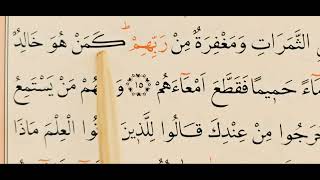 الثَّمَرَاتِ وَمَغْفِرَةٌ مِنْ رَبِّهِمْ كَمَنْ هُوَ خَالِدٌ
حَمِيمًا فَقَطَّعَ أَمْعَاءَهُمْ ١٥ مَنْ يَسْتَمِعُ
مِنْ عِنْدِكَ قَالُوا لِلَّذِينَ الْعِلْمَ مَاذَا